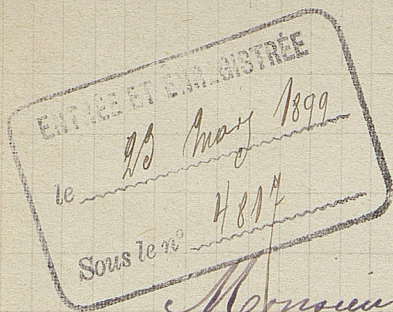 ENTRÉE ET ENREGISTRÉE
le 23 Mars 1899
Sous le n° 4817
Monsieur